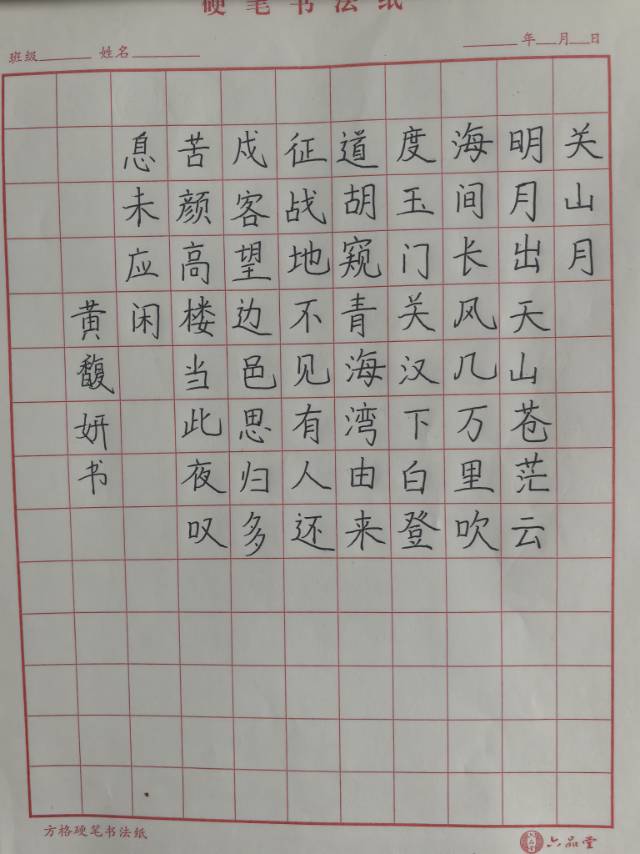 硬笔书法纸
班级 姓名 年 月 日
关山月
明月出天山苍茫云
海间长风几万里吹
度玉门关汉下白登
道胡窥青海湾由来
征战地不见有人还
戍客望边邑思归多
苦颜高楼当此夜叹
息未应闲
黄馥妍书
方格硬笔书法纸
六品堂